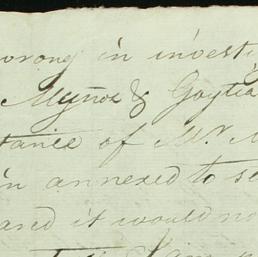 wrong in investi
Muñoz & Goytia
tance of Mr.
in annexed to se
and it would no